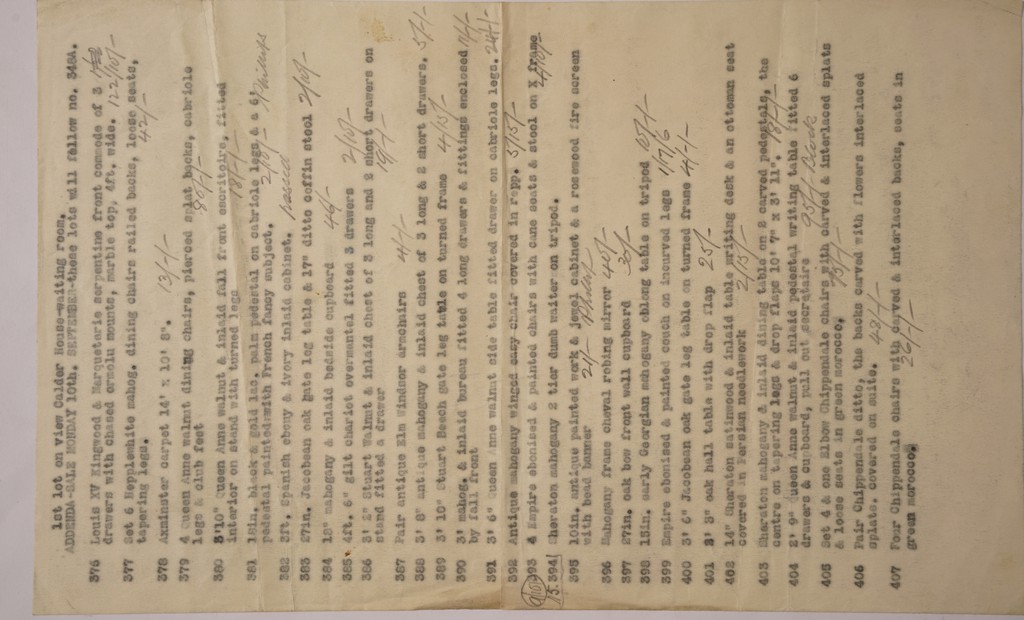 1st lot on view Calder House-waiting room.
ADDENDA-SALE MONDAY 10th. SEPTEMBER-these lots will follow no. 348A.
376 Louis XV Kingwood & Marqueterie serpentine front commode of 3
drawers with chased ormolu mounts, marble top, 4ft. wide. 122/10/-
377 Set 6 Hepplewhite mahog. dining chairs railed backs, loose seats,
tapering legs. 42/-/-
378 Axminster carpet 14' x 10' 8". 13/-/-
379 4 Queen Anne walnut dining chairs, pierced splat backs, cabriole
legs & club feet
380 3'10" Queen Anne walnut & inlaid fall front escritoire, fitted
interior on stand with turned legs 78/-/-
381 18in. black & gold lac. palm pedestal on cabriole legs, & a 6'
pedestal painted with French fancy subject. 2/10/- Phillips
382 3'f. Spanish ebony & ivory inlaid cabinet. passed
383 27in. Jacobean oak gate leg table & 17" ditto coffin stool 2/10/-
384 18" mahogany & inlaid bedside cupboard
385 4ft. 6" gilt chariot overmantel fitted 3 drawers 2/10/-
386 3' 2" Stuart walnut & inlaid chest of 3 long and 2 short drawers on
stand fitted a drawer 19/-/-
387 Pair antique Elm Windsor armchairs 4/-/-
388 3' 8" antique mahogany & inlaid chest of 3 long & 2 short drawers. 5/-/-
389 3' 10" Stuart Beech gate leg table on turned frame 4/15/-
390 3' mahog. & inlaid bureau fitted 4 long drawers & fittings enclosed
by fall front
391 3' 6" Queen Anne walnut side table fitted drawer on cabriole legs. 24/-/-
392 Antique mahogany winged easy chair covered in repp. 5/15/-
393 4 Empire ebonised & painted chairs with cane seats & stool on X frame
15. 394 Sheraton mahogany 2 tier dumb waiter on tripod.
395 10in. antique painted work & jewel cabinet & a rosewood fire screen
with bead banner 2/-/-
396 Mahogany frame cheval robing mirror 40/-
397 27in. oak bow front wall cupboard
398 15in. early Georgian mahogany oblong table on tripod
399 Empire ebonised & painted couch on incurved legs 1/17/6
400 3' 6" Jacobean oak gate leg table on turned frame 4/-/-
401 2' 3" oak hall table with drop flap 25/-
402 14" Sheraton satinwood & inlaid table writing desk & an ottoman seat
covered in Persian needlework 2/15/-
403 Sheraton mahogany & inlaid dining table on 2 carved pedestals, the
centre on tapering legs & drop flaps 10' 7" x 3' 11". 78/-/-
404 2' 9" Queen Anne walnut & inlaid pedestal writing table fitted 6
drawers & cupboard, pull out secretaire 95/-/-
405 Set 4 & one Elbow Chippendale chairs with carved & interlaced splats
& loose seats in green morocco. 75/-/-
406 Pair Chippendale ditto, the backs carved with flowers interlaced
splats. covered en suite. 48/-/-
407 Four Chippendale chairs with carved & interlaced backs, seats in
green morocco. 26/-/-